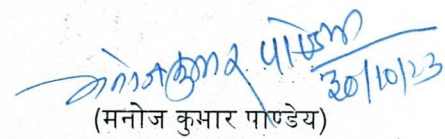 मनोज कुमार पाण्डेय
30/10/23
(मनोज कुमार पाण्डेय)